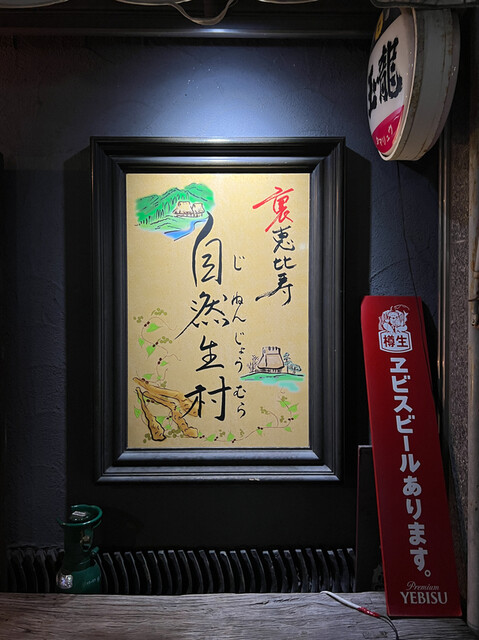 裏恵比寿
自然生村
じねんじょうむら
玉龍
樽生
ヱビスビールあります。
Premium
YEBISU